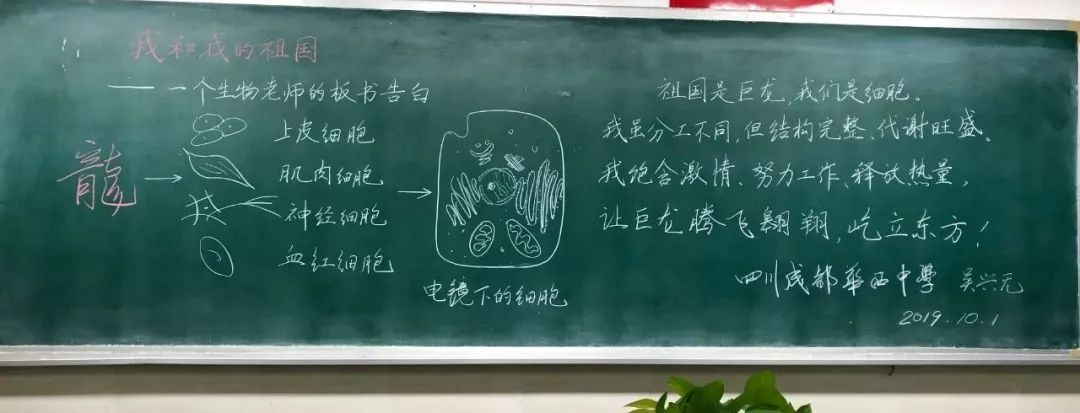 我和我的祖国
—— 一个生物老师的板书告白
龍
上皮细胞
肌肉细胞
神经细胞
血红细胞
电镜下的细胞
祖国是巨龙,我们是细胞。
我虽分工不同,但结构完整、代谢旺盛。
我饱含激情、努力工作、释放热量,
让巨龙腾飞翱翔,屹立东方!
四川成都华西中學 吴兴元
2019.10.1